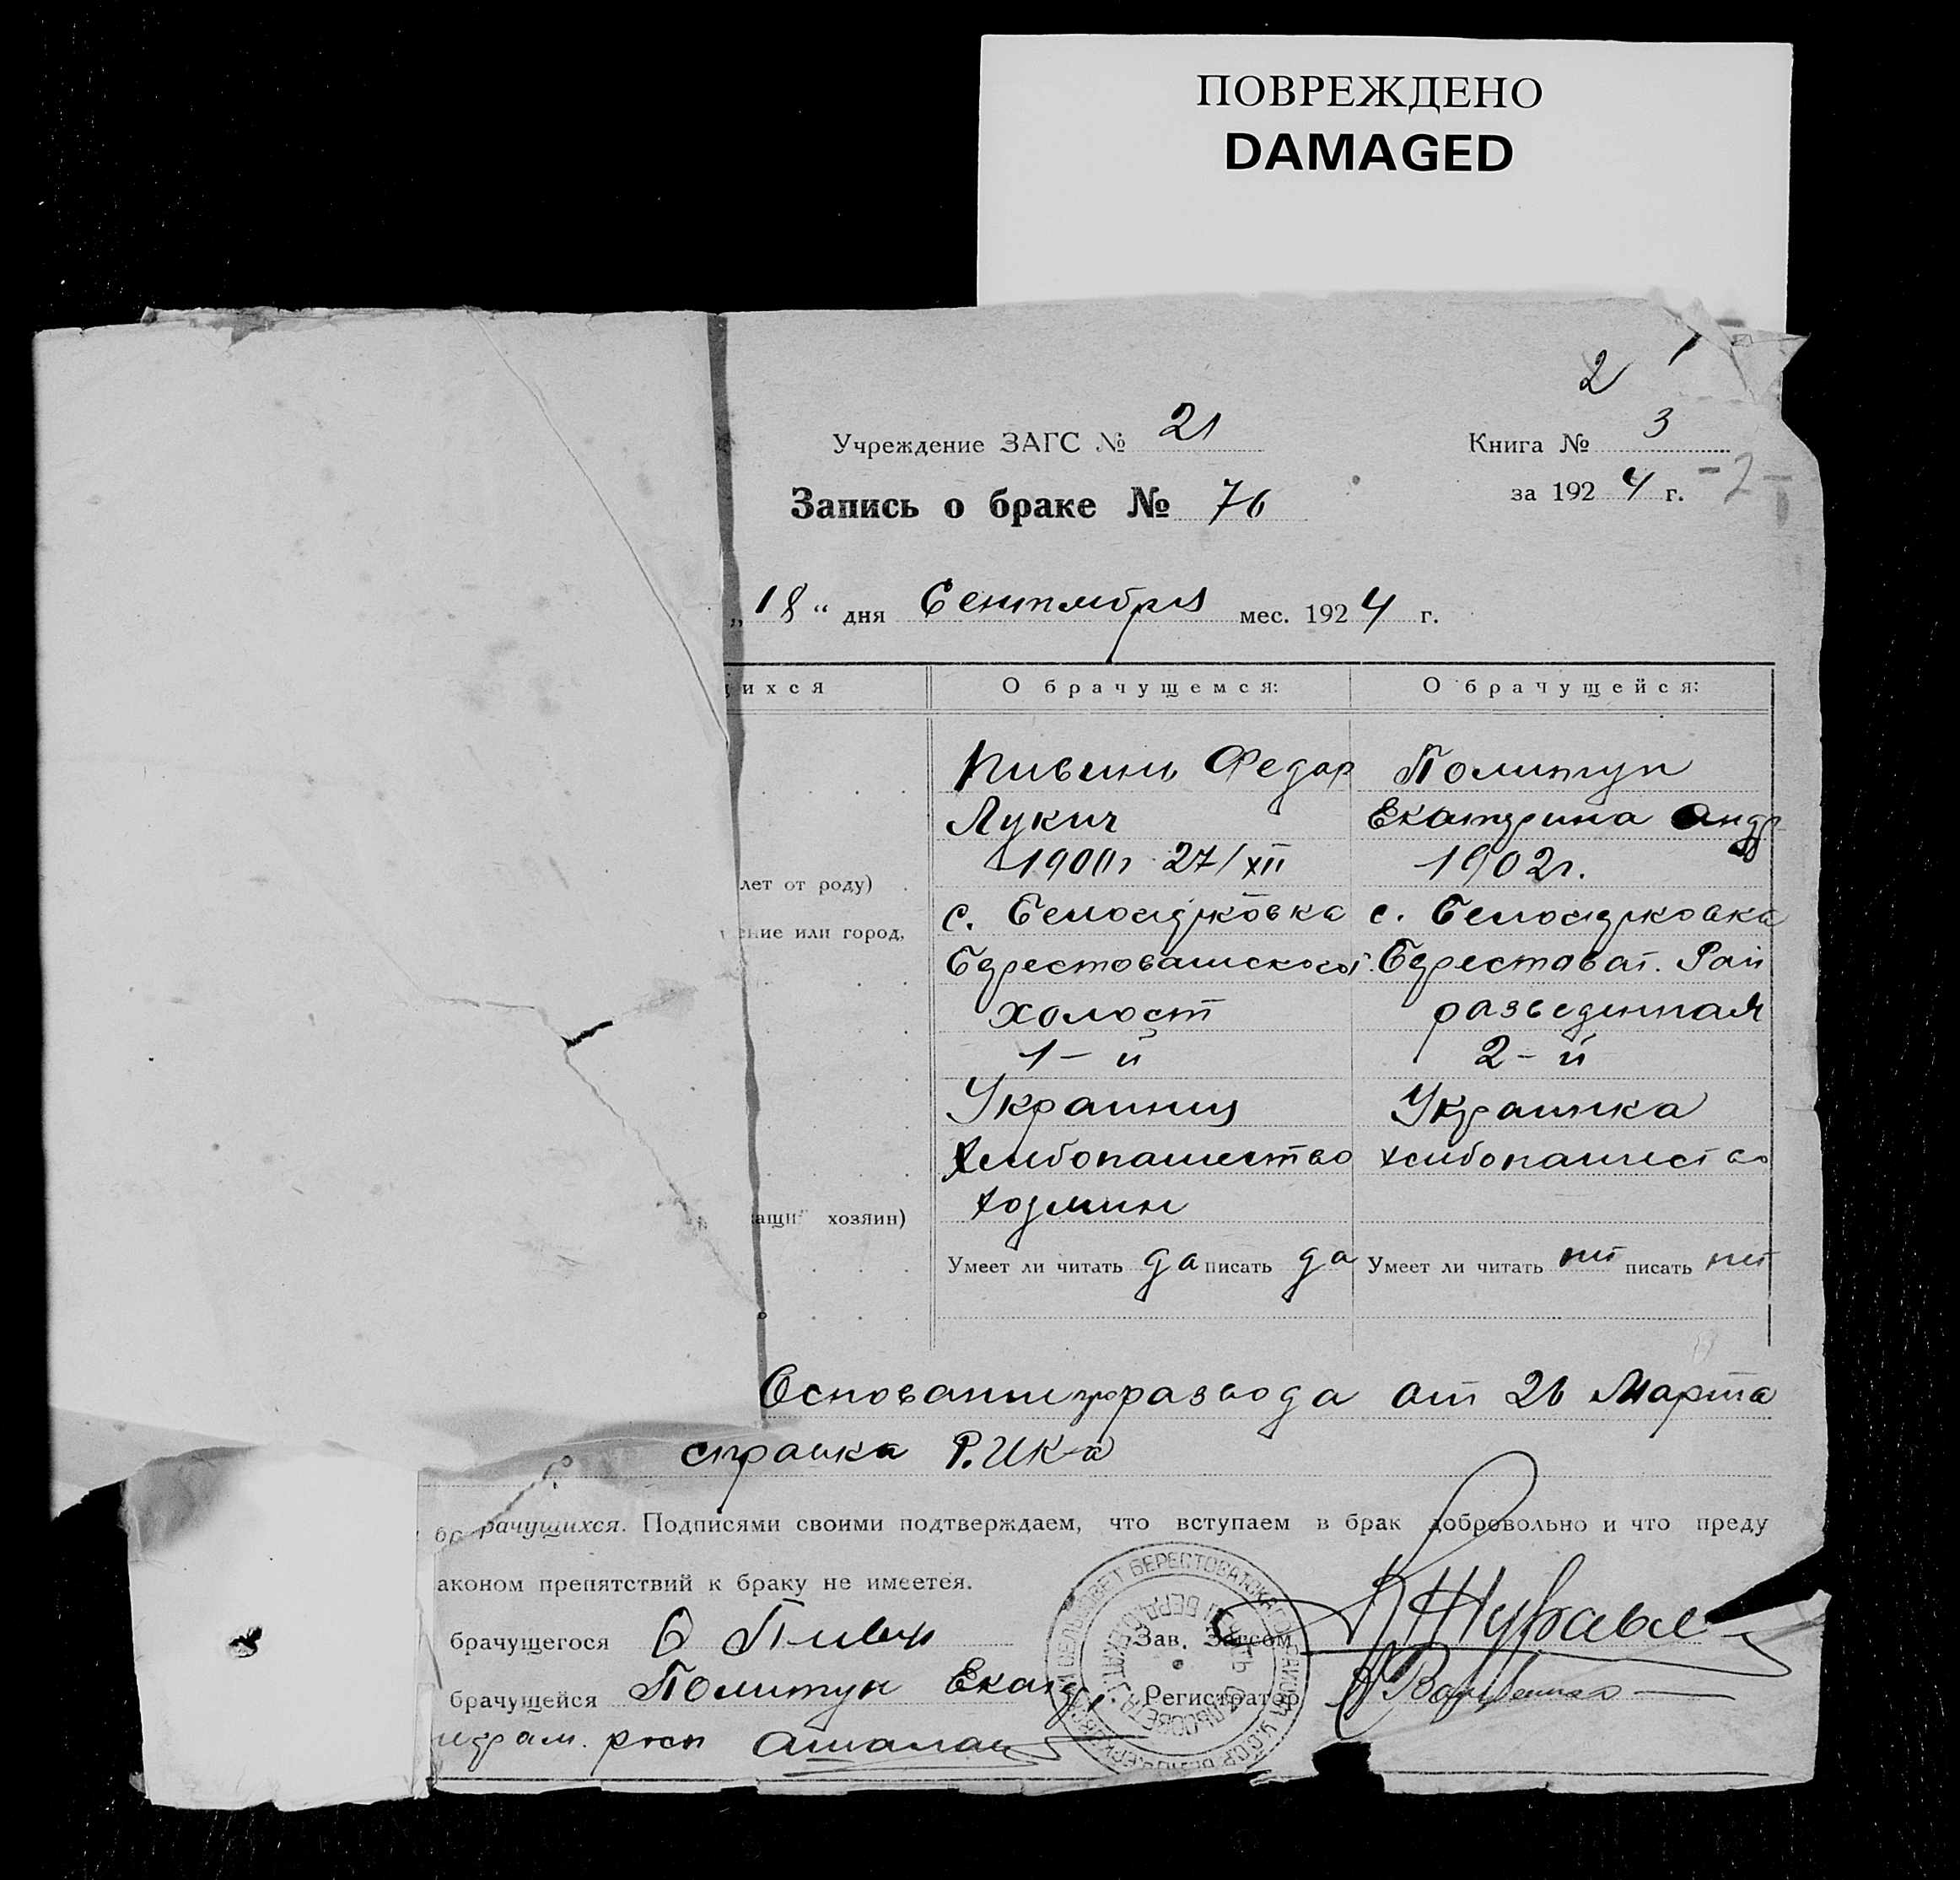 ПОВРЕЖДЕНО
DAMAGED
2
Учреждение ЗАГС № 21
Книга № 3
Запись о браке № 76
за 1924 г. -2-
„18“ дня Сентября мес. 1924 г.
щихся О брачущемся: О брачущейся:
Федор Политун
Лукич Екатерина Андр
27/XII 1902г.
лет от роду)
с. Белоцерковка с. Белоцерковка
ение или город,
Берестоват. Рай
холост разведенная
1-й 2-й
Украинец Украинка
Хлебопашество хлебопашество
хозяин)
Умеет ли читать да писать да Умеет ли читать нет писать нет
развода от 26 Марта
справка Р.ИК-а
рачущихся. Подписями своими подтверждаем, что вступаем в брак добровольно и что преду
аконом препятствий к браку не имеется.
брачущегося
Зав. Загсом
брачущейся Политун Екат
Регистратор